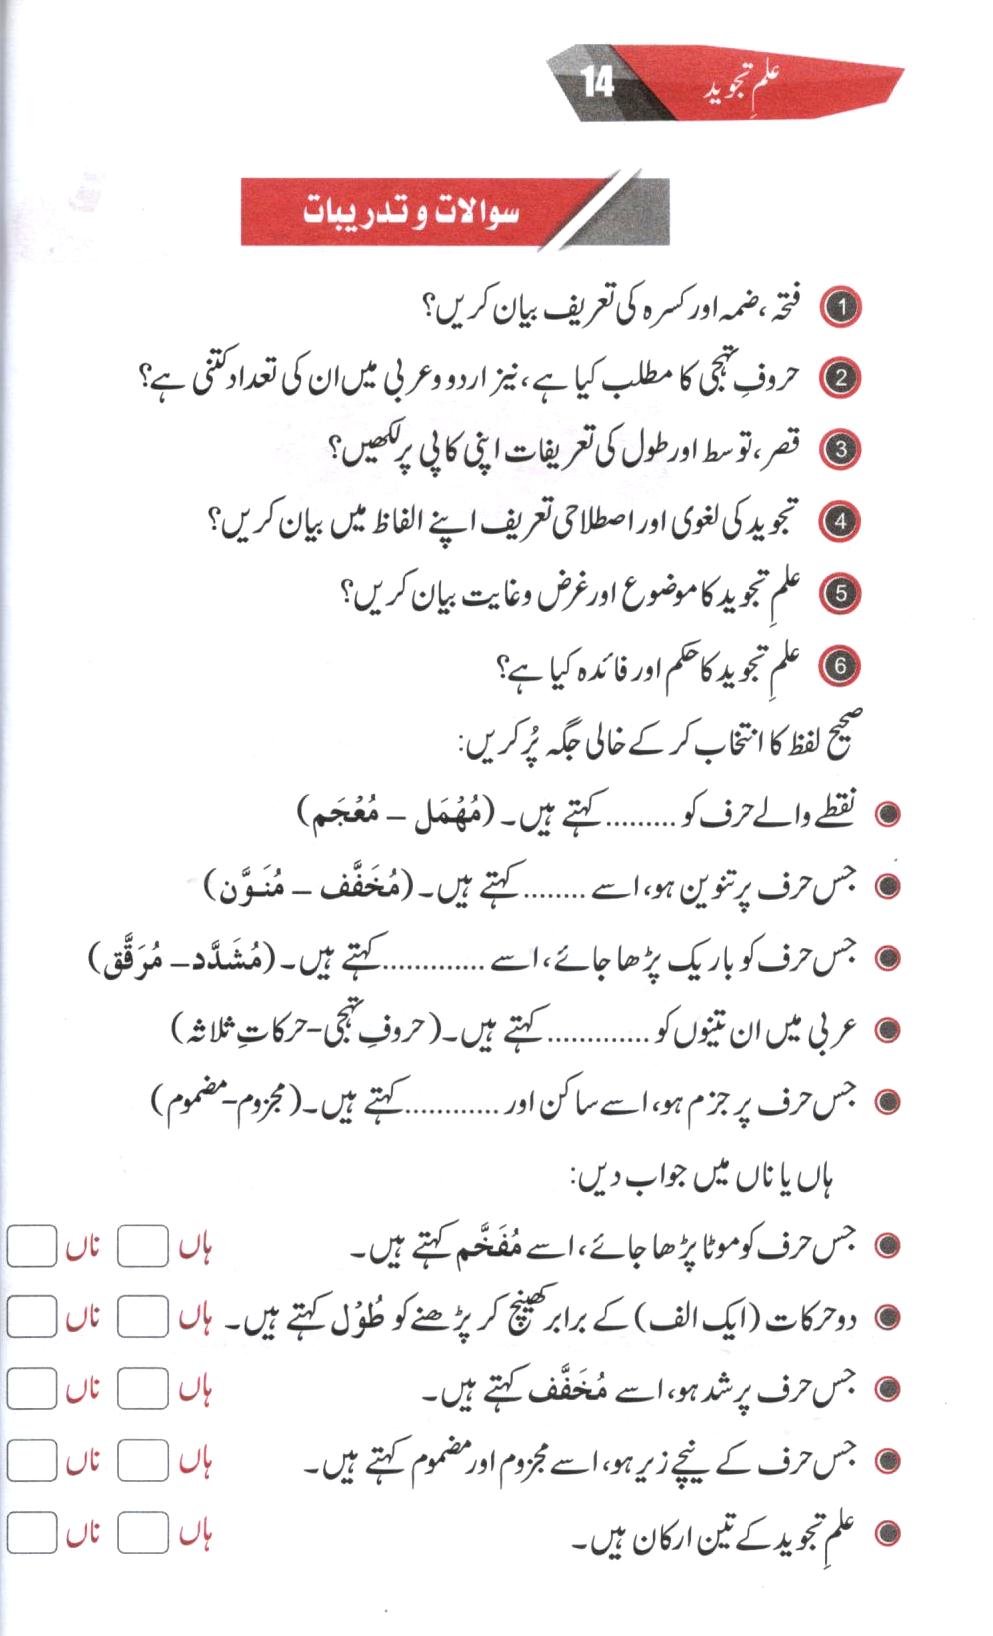 علمِ تجوید 14
سوالات و تدریبات
1 فتحہ، ضمہ اور کسرہ کی تعریف بیان کریں؟
2 حروفِ تہجی کا مطلب کیا ہے، نیز اردو و عربی میں ان کی تعداد کتنی ہے؟
3 قصر، توسط اور طول کی تعریفات اپنی کاپی پر لکھیں؟
4 تجوید کی لغوی اور اصطلاحی تعریف اپنے الفاظ میں بیان کریں؟
5 علمِ تجوید کا موضوع اور غرض و غایت بیان کریں؟
6 علمِ تجوید کا حکم اور فائدہ کیا ہے؟
صحیح لفظ کا انتخاب کر کے خالی جگہ پُر کریں:
نقطے والے حرف کو .......... کہتے ہیں۔ (مُهْمَل – مُعْجَم)
جس حرف پر تنوین ہو، اسے ........ کہتے ہیں۔ (مُخَفَّف – مُنَوَّن)
جس حرف کو باریک پڑھا جائے، اسے ............. کہتے ہیں۔ (مُشَدَّد – مُرَقَّق)
عربی میں ان تینوں کو ............. کہتے ہیں۔ (حروفِ تہجی - حرکاتِ ثلاثہ)
جس حرف پر جزم ہو، اسے ساکن اور ............ کہتے ہیں۔ (مجزوم - مضموم)
ہاں یا ناں میں جواب دیں:
جس حرف کو موٹا پڑھا جائے، اسے مُفَخَّم کہتے ہیں۔ ہاں ناں
دو حرکات (ایک الف) کے برابر کھینچ کر پڑھنے کو طُوْل کہتے ہیں۔ ہاں ناں
جس حرف پر شد ہو، اسے مُخَفَّف کہتے ہیں۔ ہاں ناں
جس حرف کے نیچے زیر ہو، اسے مجزوم اور مضموم کہتے ہیں۔ ہاں ناں
علمِ تجوید کے تین ارکان ہیں۔ ہاں ناں